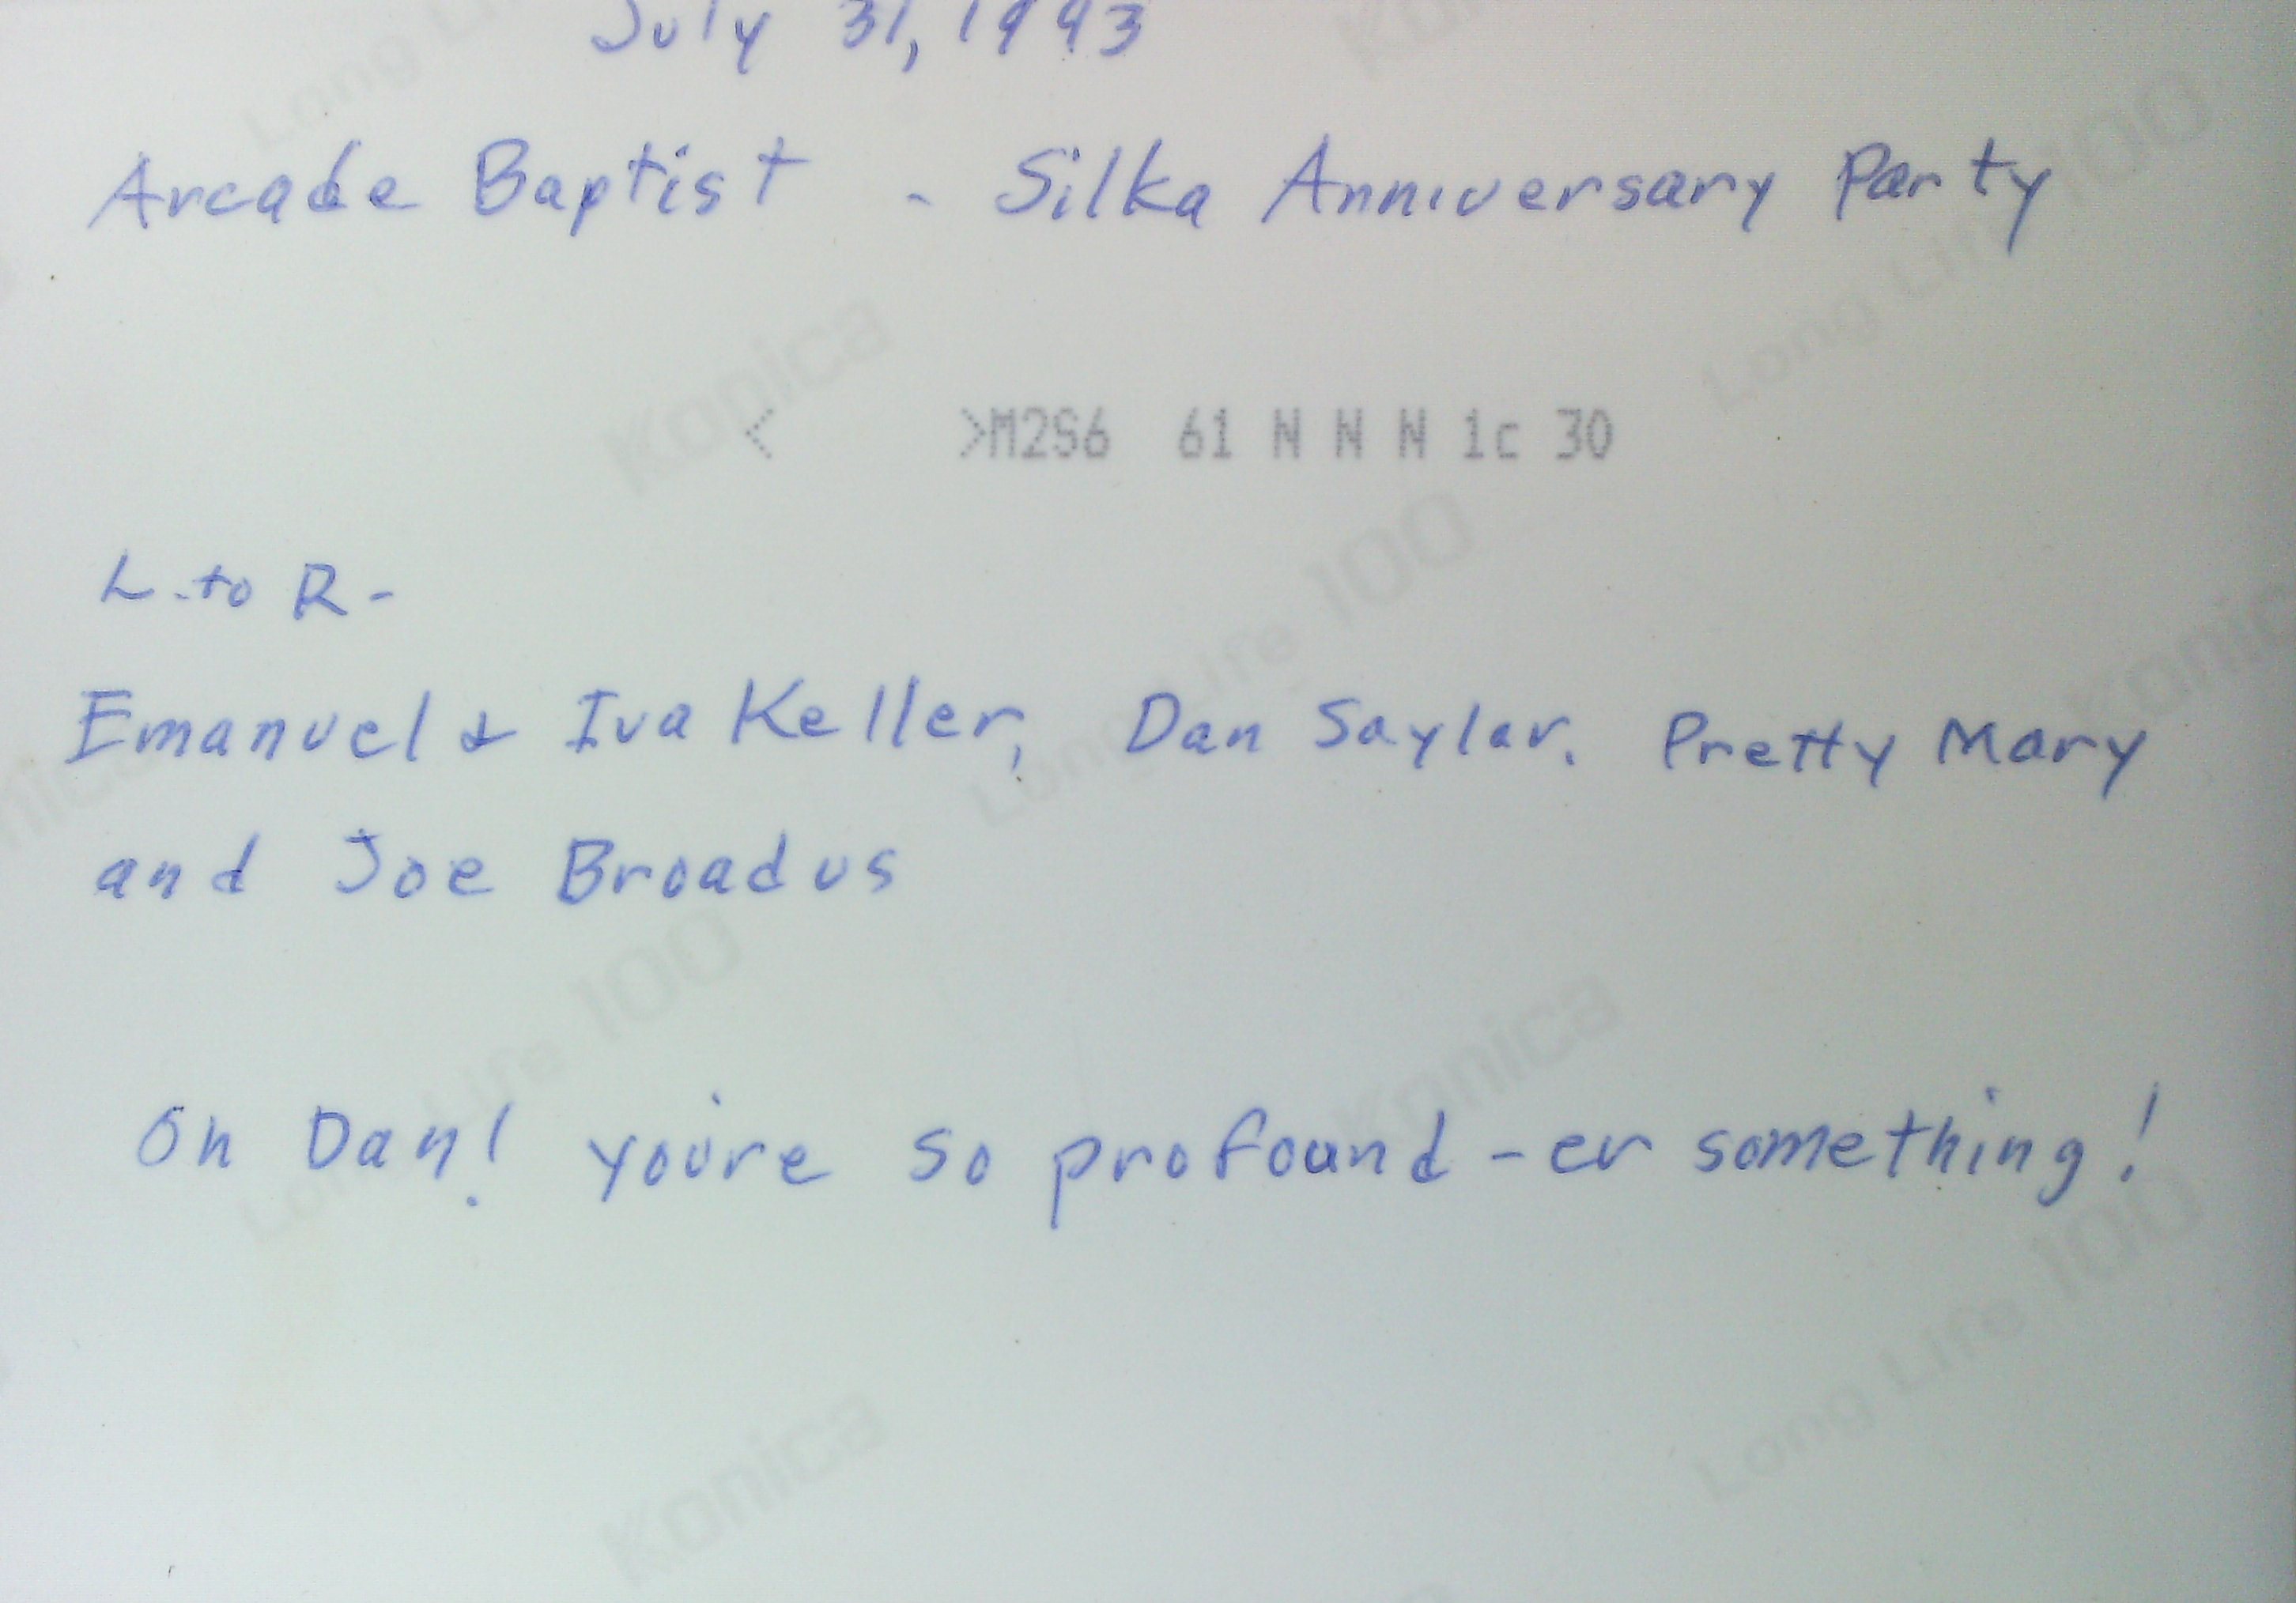 July 31, 1993
Arcade Baptist - Silka Anniversary Party
< >M2S6 61 N N N 1c 30
L. to R -
Emanuel & Iva Keller, Dan Saylor. Pretty Mary
and Joe Broadus
Oh Dan! you're so profound - er something!
Konica
Long Life 100